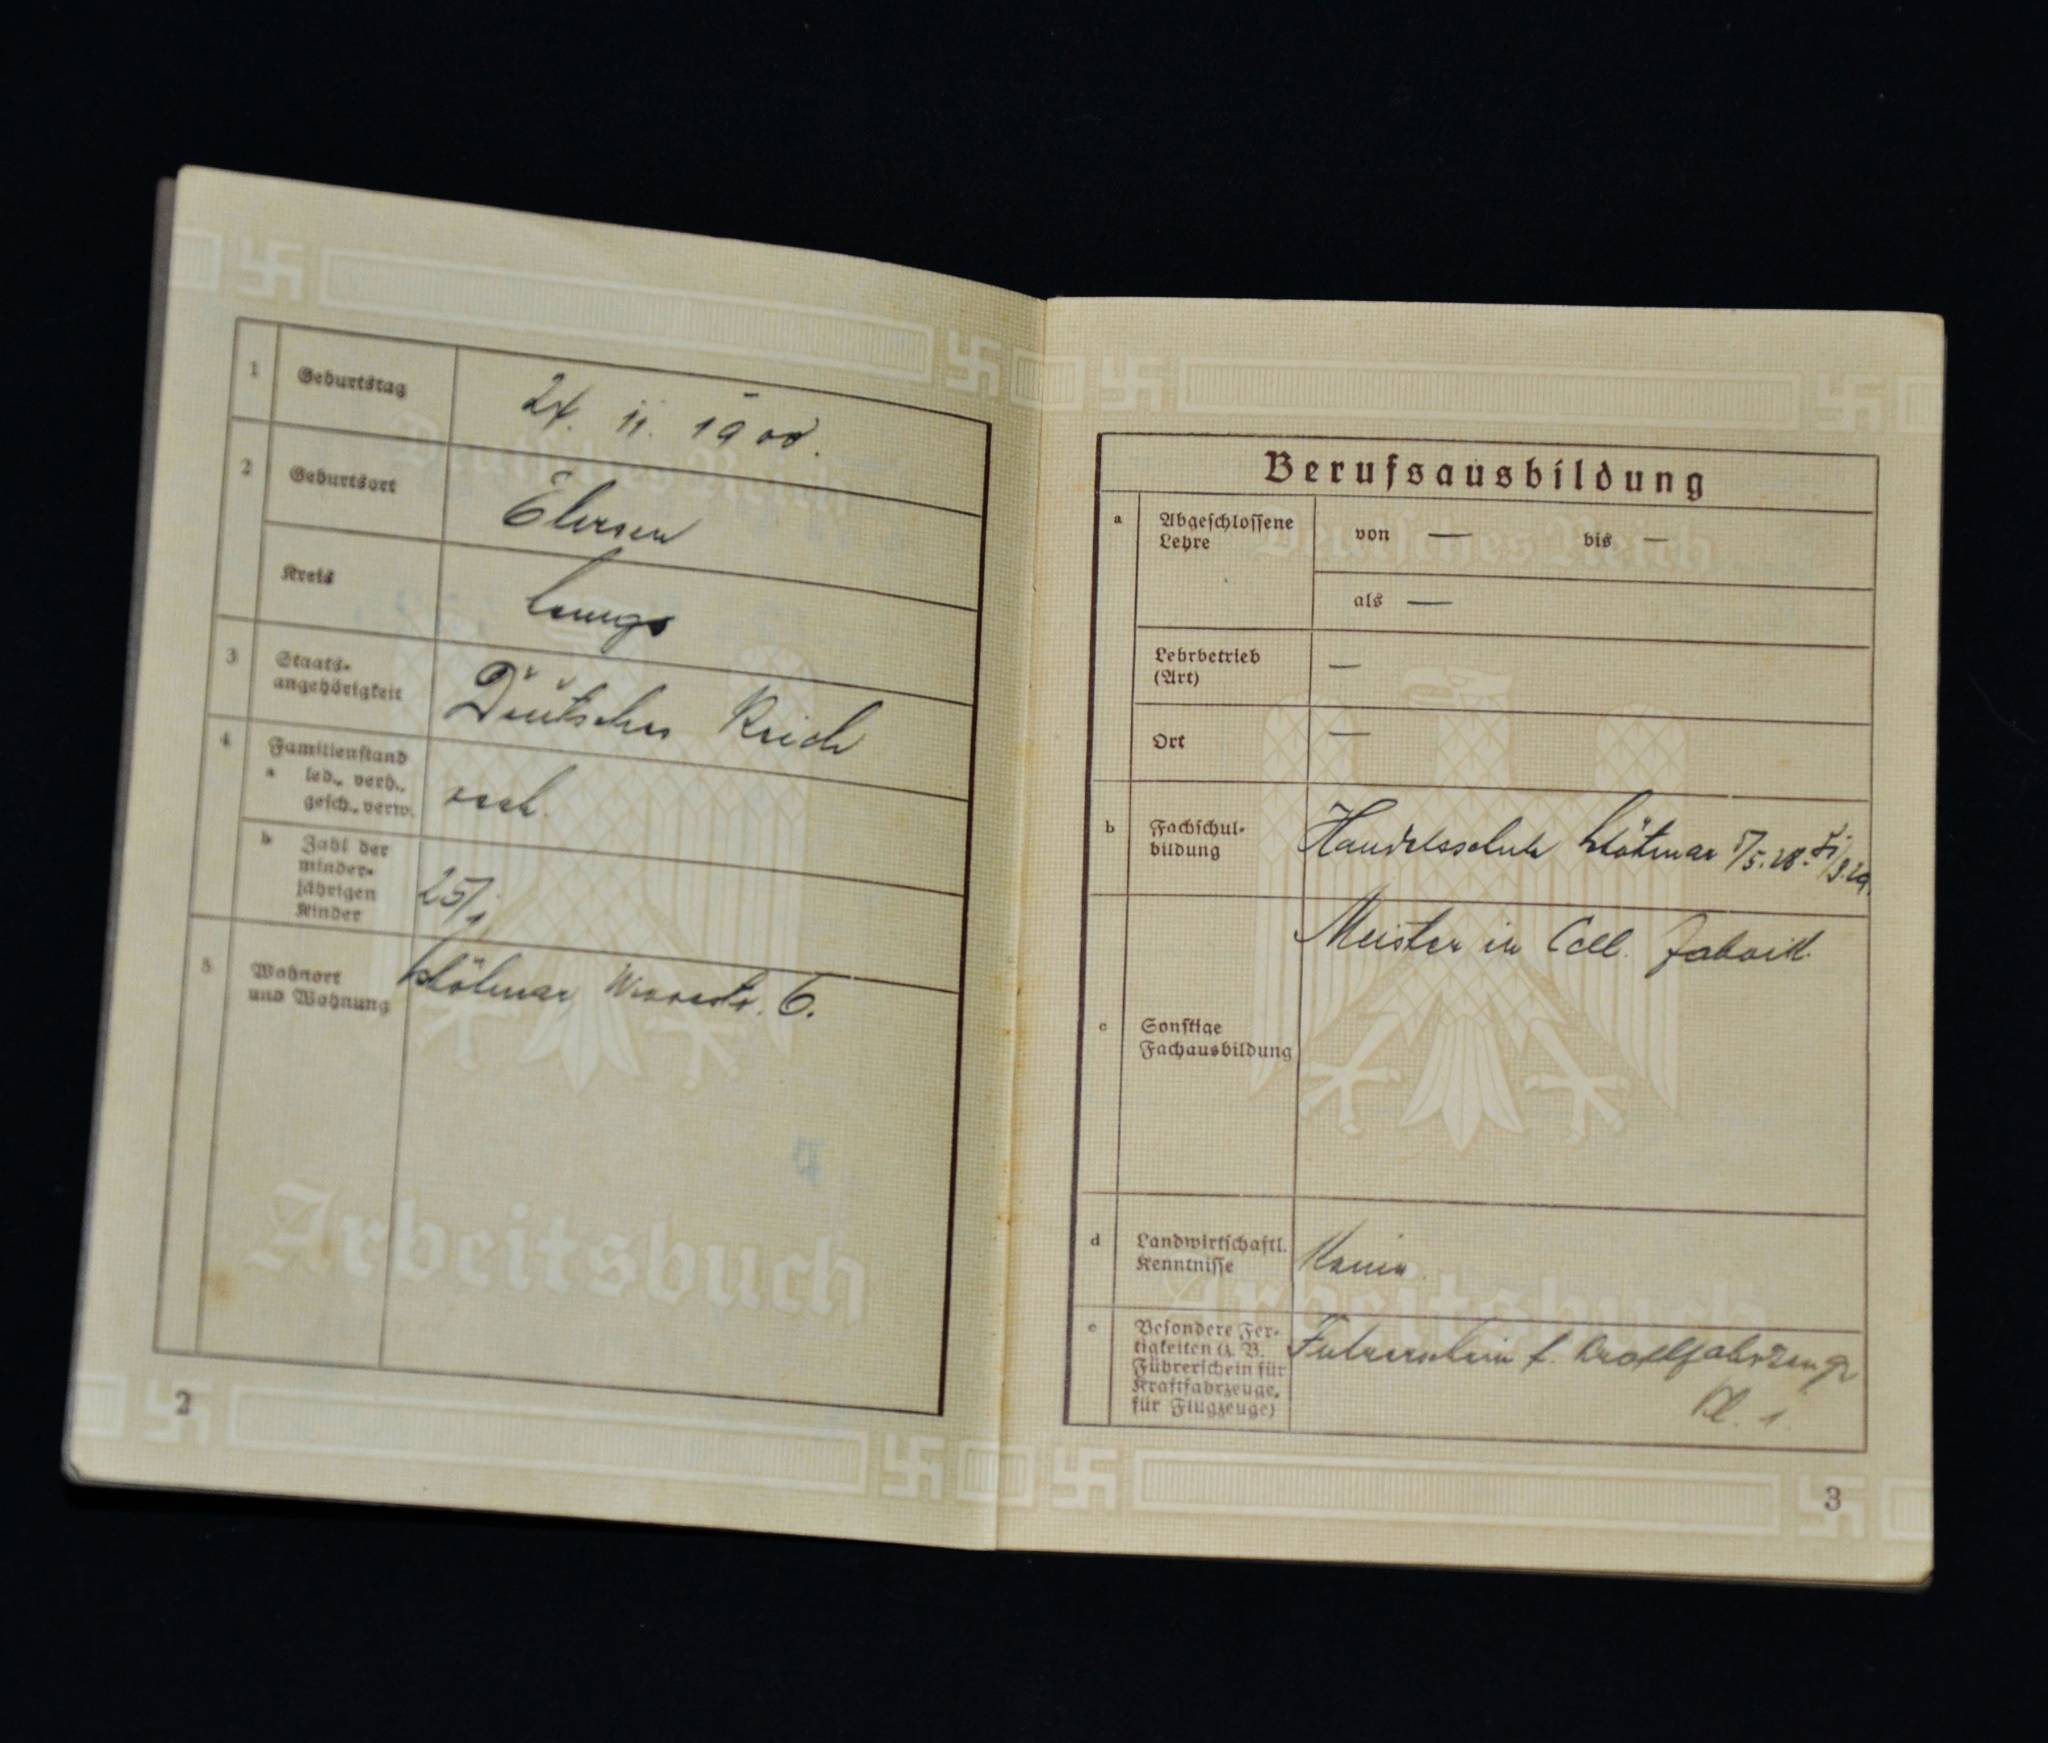 1 Geburtstag 24. 11. 1900.
2 Geburtsort
Kreis Lemgo
3 Staats-
angehörigkeit Deutsches Reich
4 Familienstand
a led., verh.,
gesch., verw. verh.
b Zahl der
minder-
jährigen
Kinder 25/1
5 Wohnort
und Wohnung Schötmar 6.
Deutsches Reich
Arbeitsbuch
2
Berufsausbildung
a Abgeschlossene
Lehre von — bis —
als —
Lehrbetrieb
(Art) —
Ort —
b Fachschul-
bildung Handelsschule Schötmar
Meister in Cell. Fabrik.
c Sonstige
Fachausbildung
d Landwirtschaftl.
Kenntnisse Keine
e Besondere Fer-
tigkeiten (z. B.
Führerschein für
Kraftfahrzeuge,
für Flugzeuge) Führerschein f. Kraftfahrzeuge
Kl. 1.
Deutsches Reich
Arbeitsbuch
3